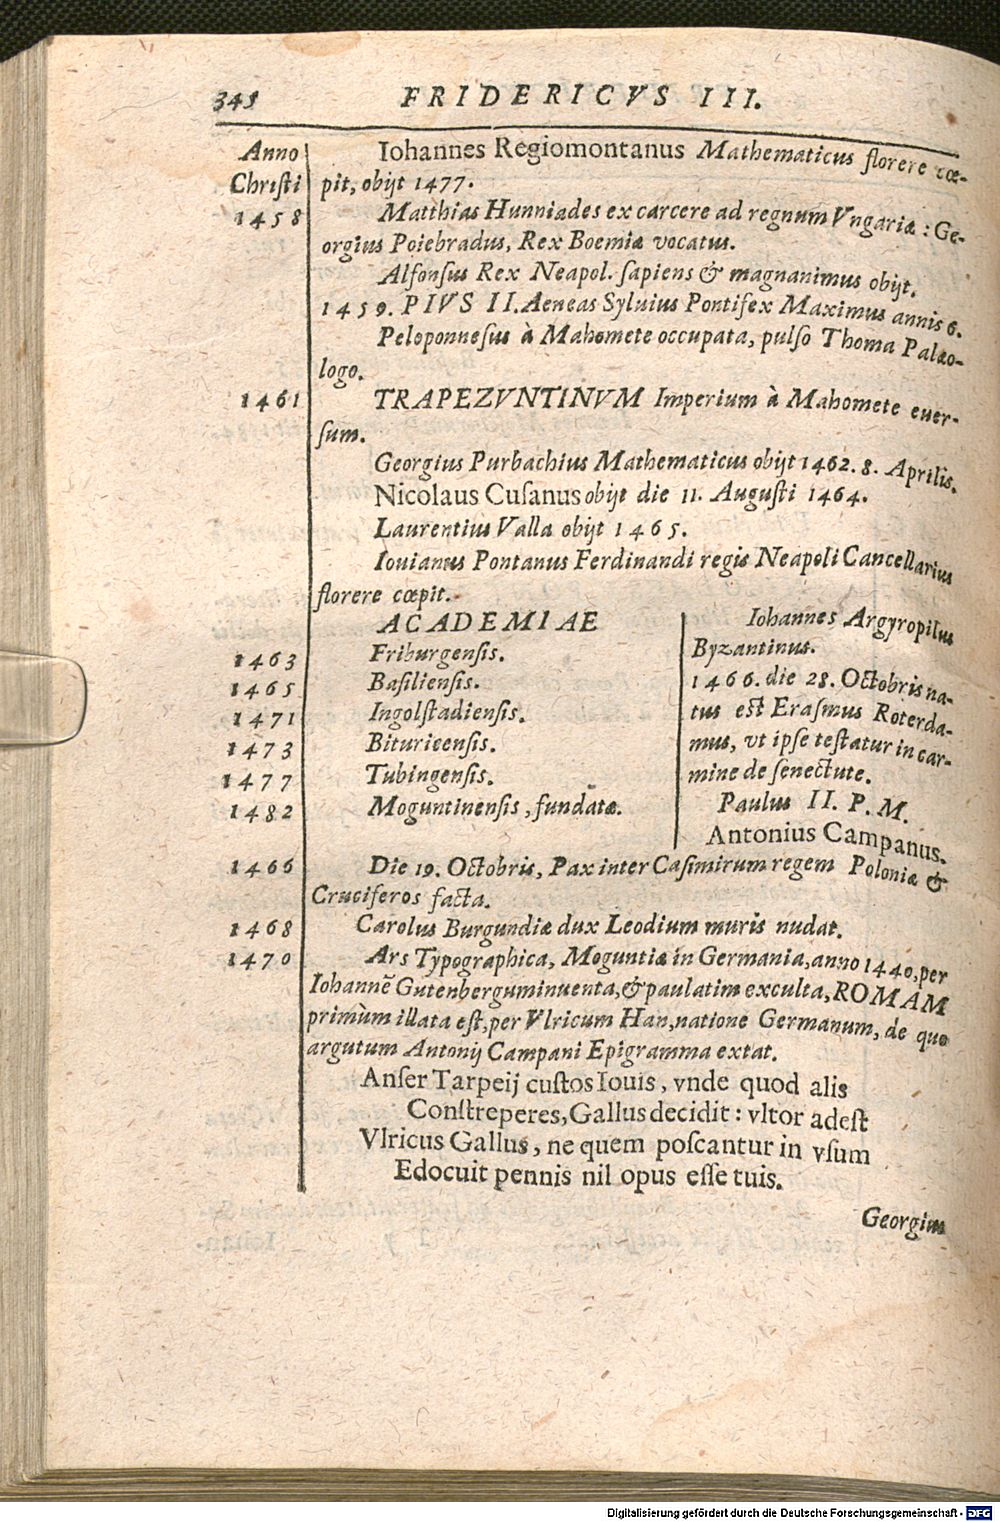 348 FRIDERICVS III.
Anno Iohannes Regiomontanus Mathematicus florere cœ-
Christi pit, obijt 1477.
1458 Matthias Hunniades ex carcere ad regnum Vngariæ : Ge-
orgius Poiebradus, Rex Boemiæ vocatus.
Alfonsus Rex Neapol. sapiens & magnanimus obijt.
1459. PIVS II. Aeneas Syluius Pontifex Maximus annis 6.
Peloponnesus à Mahomete occupata, pulso Thoma Palæo-
logo.
1461 TRAPEZVNTINVM Imperium à Mahomete euer-
sum.
Georgius Purbachius Mathematicus obijt 1462. 8. Aprilis.
Nicolaus Cusanus obijt die 11. Augusti 1464.
Laurentius Valla obijt 1465.
Iouianus Pontanus Ferdinandi regis Neapoli Cancellarius
florere cœpit.
ACADEMIAE
1463 Friburgensis.
1465 Basiliensis.
1471 Ingolstadiensis.
1473 Bituricensis.
1477 Tubingensis.
1482 Moguntinensis, fundatæ.
Iohannes Argyropilus
Byzantinus.
1466. die 28. Octobris na-
tus est Erasmus Roterda-
mus, vt ipse testatur in car-
mine de senectute.
Paulus II. P. M.
Antonius Campanus.
1466 Die 19. Octobris, Pax inter Casimirum regem Poloniæ &
Cruciferos facta.
1468 Carolus Burgundiæ dux Leodium muris nudat.
1470 Ars Typographica, Moguntiæ in Germania, anno 1440, per
Iohannē Gutenbergum inuenta, & paulatim exculta, ROMAM
primùm illata est, per Vlricum Han, natione Germanum, de quo
argutum Antonij Campani Epigramma extat.
Anser Tarpeij custos Iouis, vnde quod alis
Constreperes, Gallus decidit : vltor adest
Vlricus Gallus, ne quem poscantur in vsum
Edocuit pennis nil opus esse tuis.
Georgius
Digitalisierung gefördert durch die Deutsche Forschungsgemeinschaft - DFG